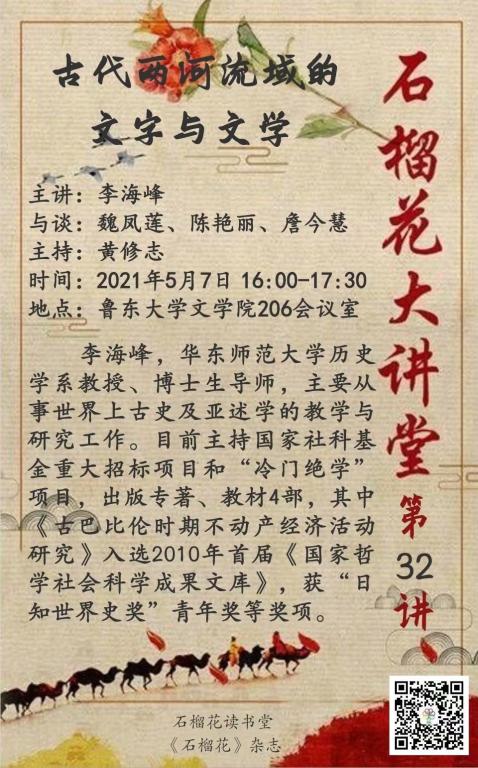 古代两河流域的
文字与文学
主讲：李海峰
与谈：魏凤莲、陈艳丽、詹今慧
主持：黄修志
时间：2021年5月7日 16:00-17:30
地点：鲁东大学文学院206会议室
李海峰，华东师范大学历史
学系教授、博士生导师，主要从
事世界上古史及亚述学的教学与
研究工作。目前主持国家社科基
金重大招标项目和“冷门绝学”
项目，出版专著、教材4部，其中
《古巴比伦时期不动产经济活动
研究》入选2010年首届《国家哲
学社会科学成果文库》，获“日
知世界史奖”青年奖等奖项。
石榴花大讲堂第32讲
石榴花读书堂
《石榴花》杂志